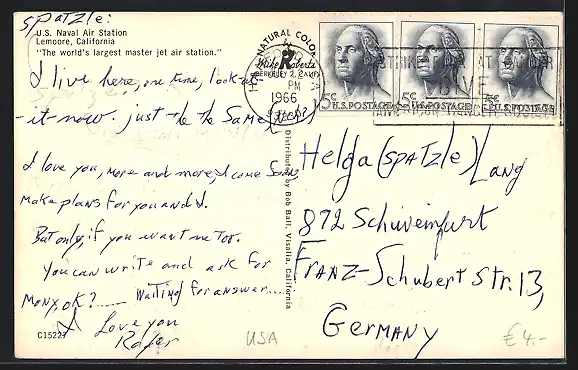 Spatzle:
U.S. Naval Air Station
Lemoore, California
"The world's largest master jet air station."
I live here, one time, look at
it now. just to be the same
I love you, more and more, I come soon,
make plans for you and I.
But only, if you want me too.
You can write and ask for
Mony, ok? waiting for answer....
I Love you
C15227
USA
NATURAL COLOR
Mike Roberts
BERKELEY 2, CALIF
PM
1966
5¢ U.S. POSTAGE
5¢ U.S. POSTAGE
5¢ U.S. POSTAGE
Distributed by Bob Ball, Visalia, California
Helga (SPATZLE) Lang
872 Schweinfurt
FRANZ-Schubert Str. 13,
GERMANY
€ 4.-